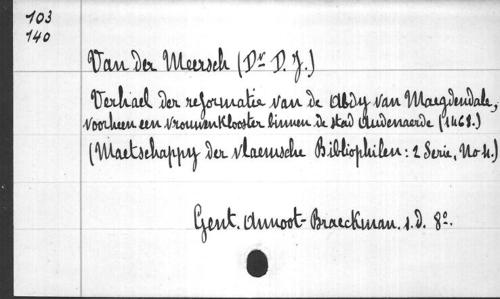 103
140
Van der Meersch (Dr D. J.)
Verhael der reformatie van de Abdy van Maegdendale,
voorheen een vrouwenklooster binnen de stad Audenaerde (1468.)
(Maetschappy der vlaemsche Bibliophilen: 2 Serie, No 4.)
Gent. Annoot-Braeckman. s.d. 8o.